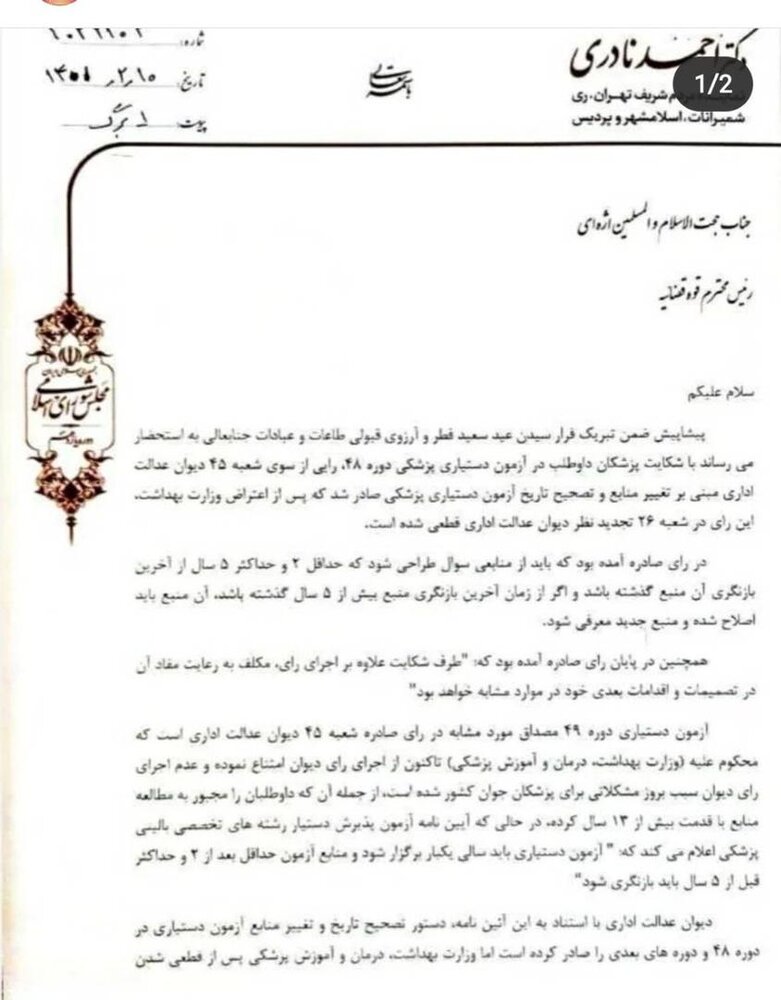 دکتر احمد نادری
1/2
مردم شریف تهران، ری
شمیرانات، اسلامشهر و پردیس
باسمه تعالی
شماره:
تاریخ: ۱۴۰۱/۲/۱۵
پیوست: ۱ برگ
جمهوری اسلامی ایران
مجلس شورای اسلامی
دوره یازدهم
جناب حجت الاسلام و المسلمین اژه‌ای
رئیس محترم قوه قضائیه
سلام علیکم
پیشاپیش ضمن تبریک فرار سیدن عید سعید فطر و آرزوی قبولی طاعات و عبادات جنابعالی به استحضار
می رساند با شکایت پزشکان داوطلب در آزمون دستیاری پزشکی دوره ۴۸، رایی از سوی شعبه ۴۵ دیوان عدالت
اداری مبنی بر تغییر منابع و تصحیح تاریخ آزمون دستیاری پزشکی صادر شد که پس از اعتراض وزارت بهداشت،
این رای در شعبه ۲۶ تجدید نظر دیوان عدالت اداری قطعی شده است.
در رای صادره آمده بود که باید از منابعی سوال طراحی شود که حداقل ۲ و حداکثر ۵ سال از آخرین
بازنگری آن منبع گذشته باشد و اگر از زمان آخرین بازنگری منبع بیش از ۵ سال گذشته باشد، آن منبع باید
اصلاح شده و منبع جدید معرفی شود.
همچنین در پایان رای صادره آمده بود که: "طرف شکایت علاوه بر اجرای رای، مکلف به رعایت مفاد آن
در تصمیمات و اقدامات بعدی خود در موارد مشابه خواهد بود"
آزمون دستیاری دوره ۴۹ مصداق مورد مشابه در رای صادره شعبه ۴۵ دیوان عدالت اداری است که
محکوم علیه (وزارت بهداشت، درمان و آموزش پزشکی) تاکنون از اجرای رای دیوان امتناع نموده و عدم اجرای
رای دیوان سبب بروز مشکلاتی برای پزشکان جوان کشور شده است، از جمله آن که داوطلبان را مجبور به مطالعه
منابع با قدمت بیش از ۱۳ سال کرده، در حالی که آیین نامه آزمون پذیرش دستیار رشته های تخصصی بالینی
پزشکی اعلام می کند که: " آزمون دستیاری باید سالی یکبار برگزار شود و منابع آزمون حداقل بعد از ۲ و حداکثر
قبل از ۵ سال باید بازنگری شود"
دیوان عدالت اداری با استناد به این آئین نامه، دستور تصحیح تاریخ و تغییر منابع آزمون دستیاری در
دوره ۴۸ و دوره های بعدی را صادر کرده است اما وزارت بهداشت، درمان و آموزش پزشکی پس از قطعی شدن